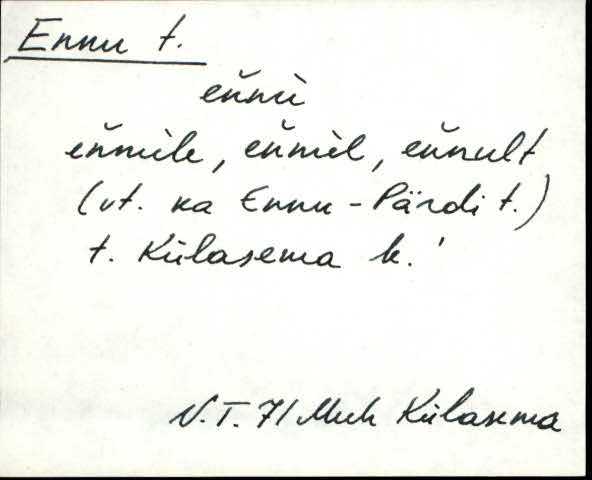 Ennu t.
eňnù
eňnùle, eňnùl, eňnult
(vt. ka Ennu-Pärdi t.)
t. Külasema k.'
N.T. 71 Muh Külasema